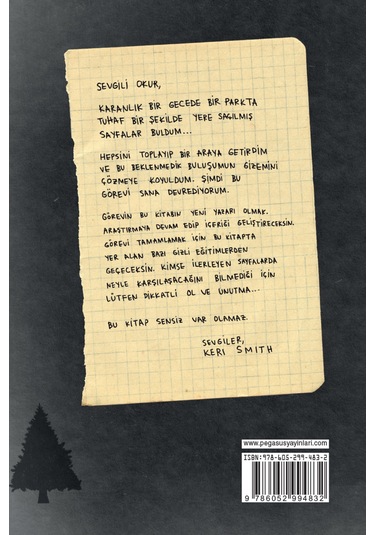 SEVGİLİ OKUR,
KARANLIK BİR GECEDE BİR PARKTA
TUHAF BİR ŞEKİLDE YERE SAÇILMIŞ
SAYFALAR BULDUM...
HEPSİNİ TOPLAYIP BİR ARAYA GETİRDİM
VE BU BEKLENMEDİK BULUŞUMUN GİZEMİNİ
ÇÖZMEYE KOYULDUM. ŞİMDİ BU
GÖREVİ SANA DEVREDİYORUM.
GÖREVİN BU KİTABIN YENİ YAZARI OLMAK.
ARAŞTIRMAYA DEVAM EDİP İÇERİĞİ GELİŞTİRECEKSİN.
GÖREVİ TAMAMLAMAK İÇİN BU KİTAPTA
YER ALAN BAZI GİZLİ EĞİTİMLERDEN
GEÇECEKSİN. KİMSE İLERLEYEN SAYFALARDA
NEYLE KARŞILAŞACAĞINI BİLMEDİĞİ İÇİN
LÜTFEN DİKKATLİ OL VE UNUTMA...
BU KİTAP SENSİZ VAR OLAMAZ.
SEVGİLER,
KERI SMITH
www.pegasusyayinlari.com
ISBN:978-605-299-483-2
9 786052 994832